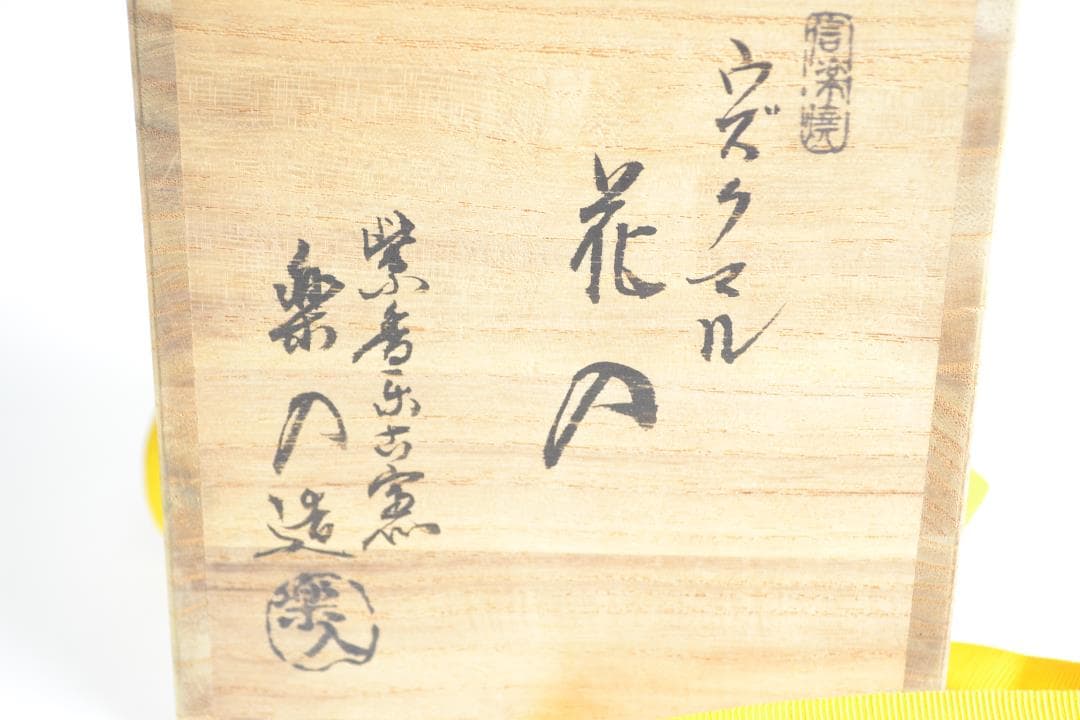 信楽焼
ウズクマル
花入
紫香楽古窯
楽入造
楽入